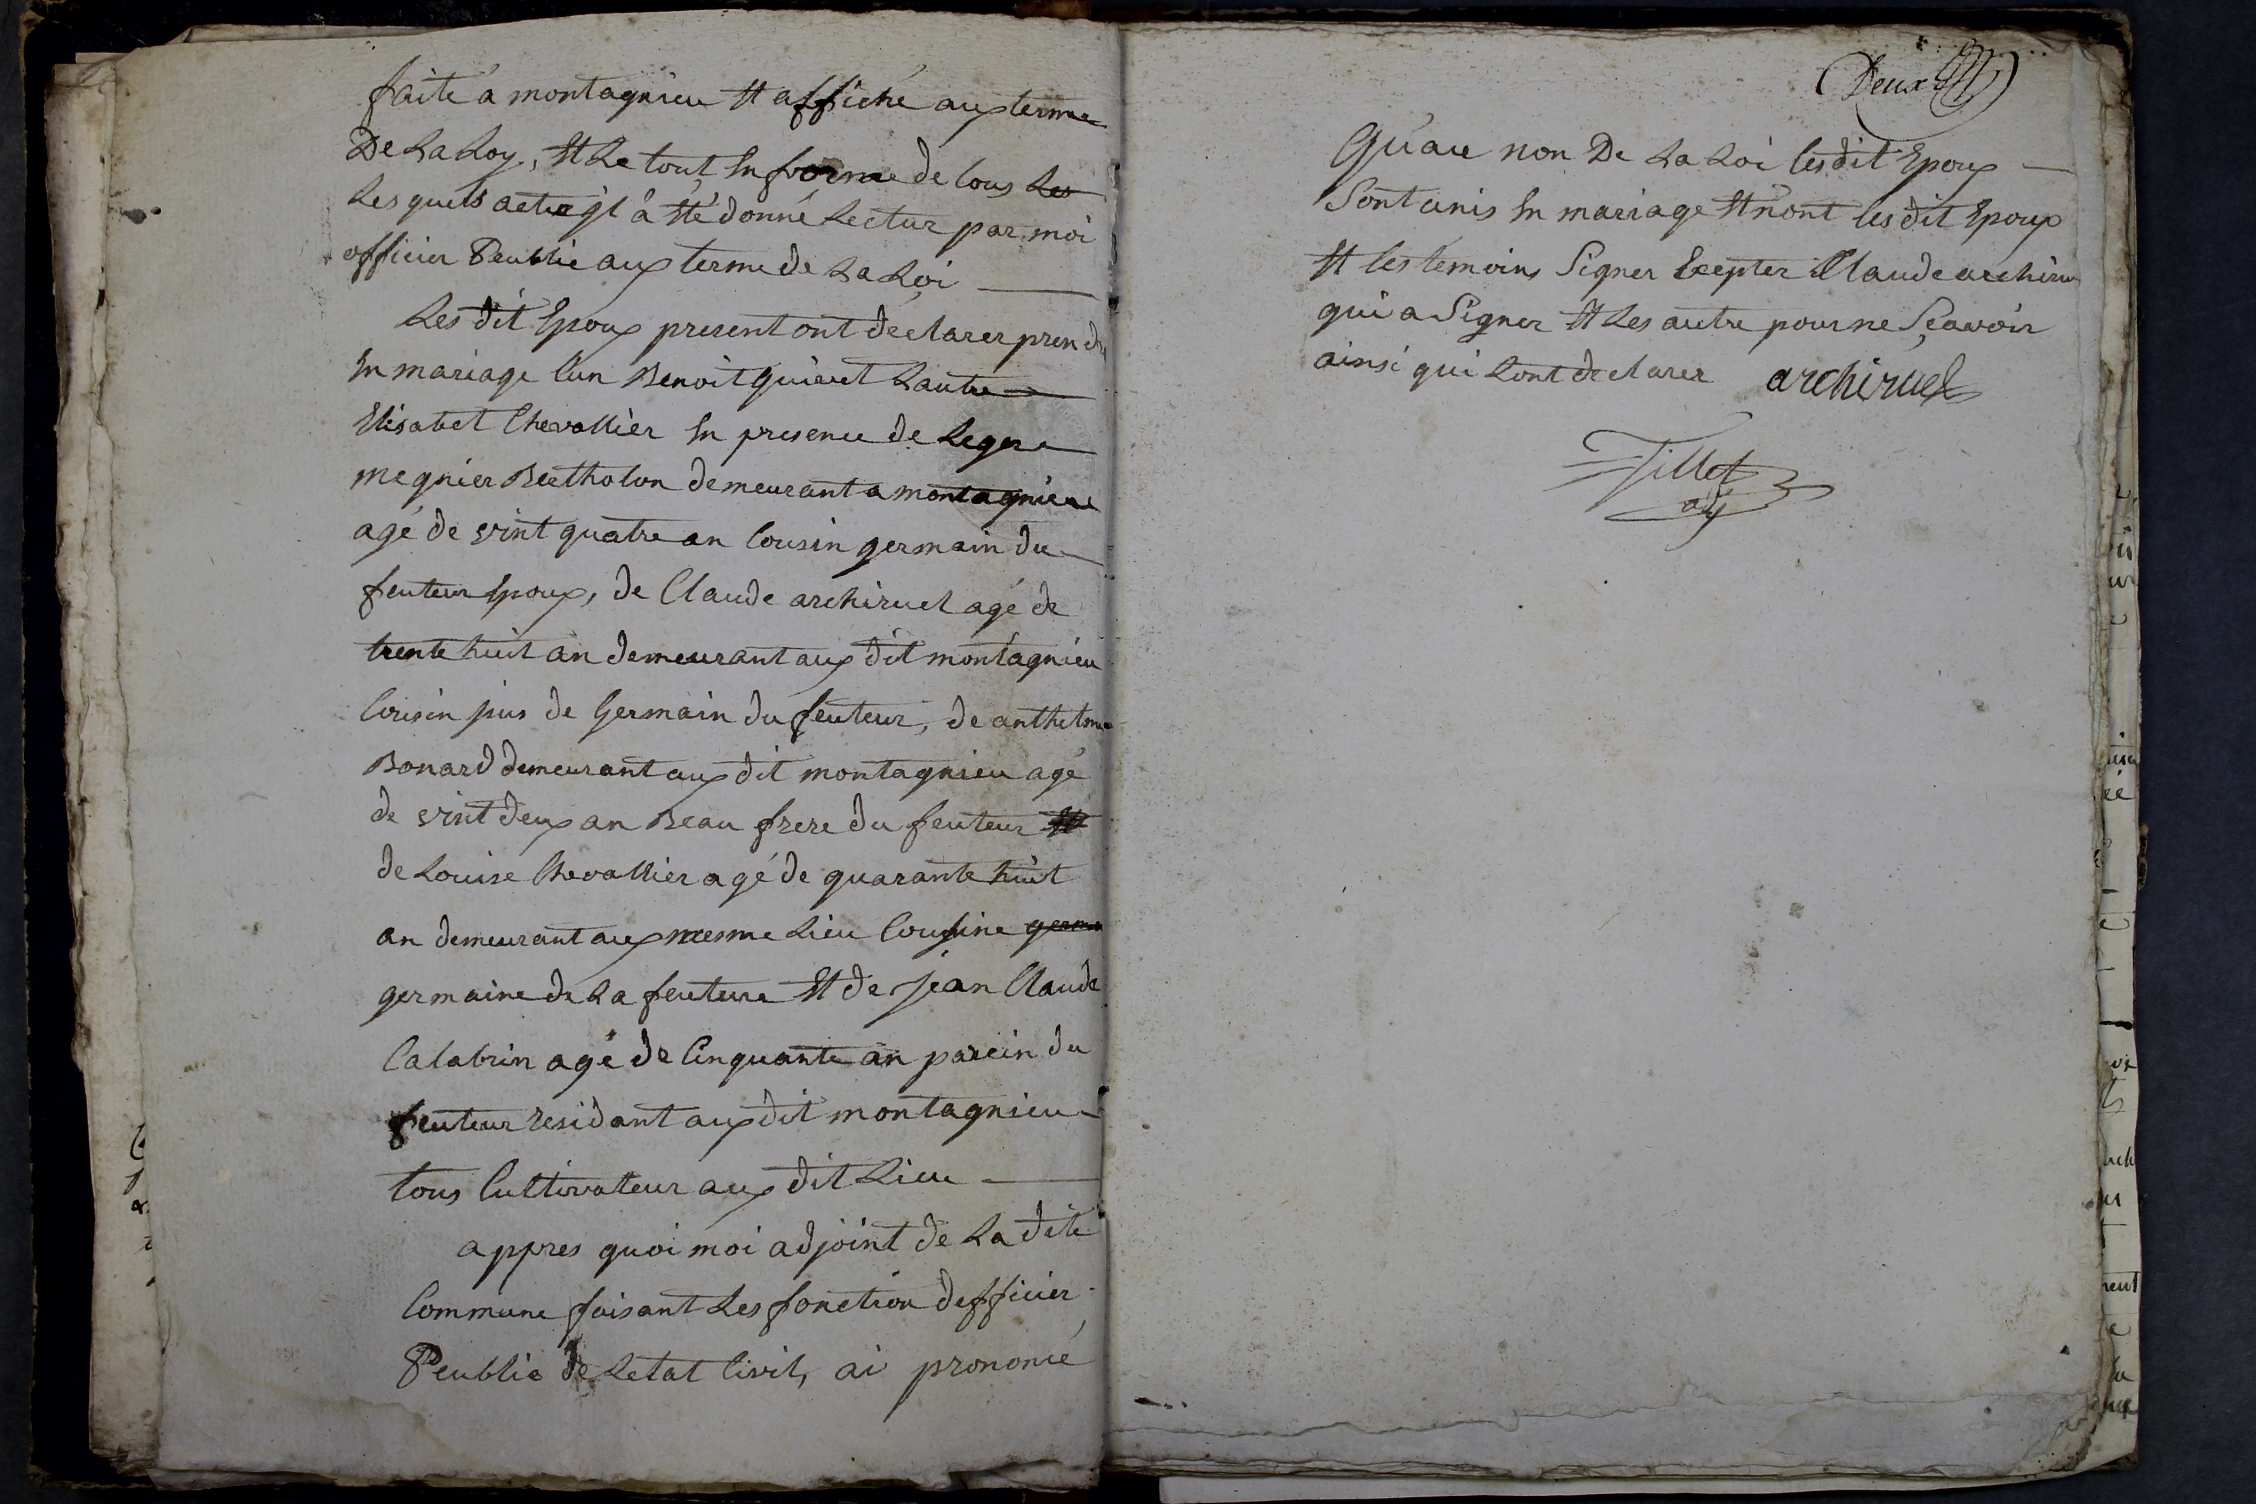 faite a montagnieu Et affiché aux terme
De La Loy, Et Le tout En forme de tous Les
Les quels acte Jl à Eté donné Lectur par moi
officier Peublic aux terme de La Loi
Les dit Epoux present ont déclarer prendre
En mariage l'un Benoit quivet Lautre
Elisabet Chevallier En presence de
megnier Bertholon demeurant a montagnieu
agé de vint quatre an Cousin germain du
feuteur Epoux, de Claude archiruel agé de
trente huit an demeurant aux dit montagnieu
Cousin jus de Germain du feuteur, de anthelme
Bonard demeurant aux dit montagnieu agé
de vint deux an Beau frere du feuteur Et
de Louise Chevallier agé de quarante huit
an demeurant aux mesme Lieu Cousine germ
germaine de La feuteure Et de jean Claude
Calabrin agé de Cinquante an parein du
feuteur residant aux dit montagnieu
tous Cultivateur aux dit Lieu
appres quoi moi adjoint de La dite
Commune faisant Les fonction dofficier
Peublic de Letat Civil, ai prononcé
Deux
Qu'au non De La Loi les dit Epoux
Sont unis En mariage Et n'ont les dit Epoux
Et les temoins Signer Excepter Claude archiruel
qui a Signer Et Les autre pour ne Sçavoir
ainsi qui Lont declarer archiruel
Tillet
adj